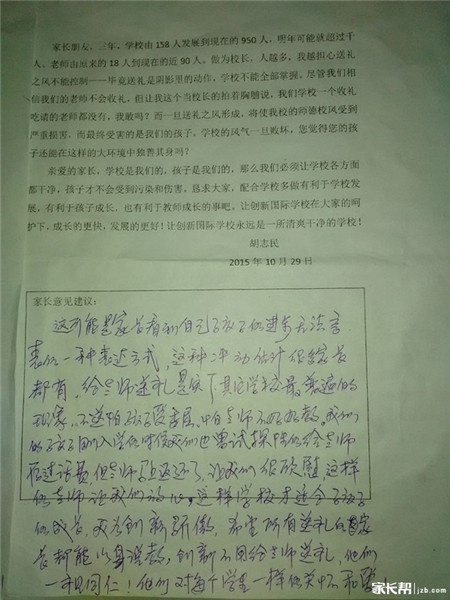 家长朋友，三年，学校由 158 人发展到现在的 950 人，明年可能就超过千
人，老师由原来的 18 人到现在的近 90 人。做为校长，人越多，我越担心送礼
之风不能控制——毕竟送礼是阴影里的动作，学校不能全部掌握。尽管我们相
信我们的老师不会收礼，但让我这个当校长的拍着胸脯说，我们学校一个收礼
吃请的老师都没有，我敢吗？而一旦送礼之风形成，将使我校的师德校风受到
严重损害，而最终受害的是我们的孩子。学校的风气一旦败坏，您觉得您的孩
子还能在这样的大环境中独善其身吗？
亲爱的家长，学校是我们的，孩子是我们的，那么我们必须让学校各方面
都干净，孩子才不会受到污染和伤害。恳求大家，配合学校多做有利于学校发
展，有利于孩子成长，也有利于教师成长的事吧。让创新国际学校在大家的呵
护下，成长的更快，发展的更好！让创新国际学校永远是一所清爽干净的学校！
胡志民
2015 年 10 月 29 日
家长意见建议：
这可能是家长看到自己孩子的进步无法言
表的一种表达方式，这种冲动估计很多家长
都有，给老师送礼是实下其它学校最普遍的
现象，不送怕孩子受委屈，怕老师不好好教。我们
的孩子刚入学的时候我们也尝试探性的给老师
充过话费，但老师退还了，让我们很欣慰，这样
的老师让我们放心，这样学校才适合孩子
的成长，更为创新骄傲，希望所有送礼的家
长都能以身说教，创新不用给老师送礼，他们
一视同仁！他们对每个学生一样的关怀和
家长帮 jzb.com